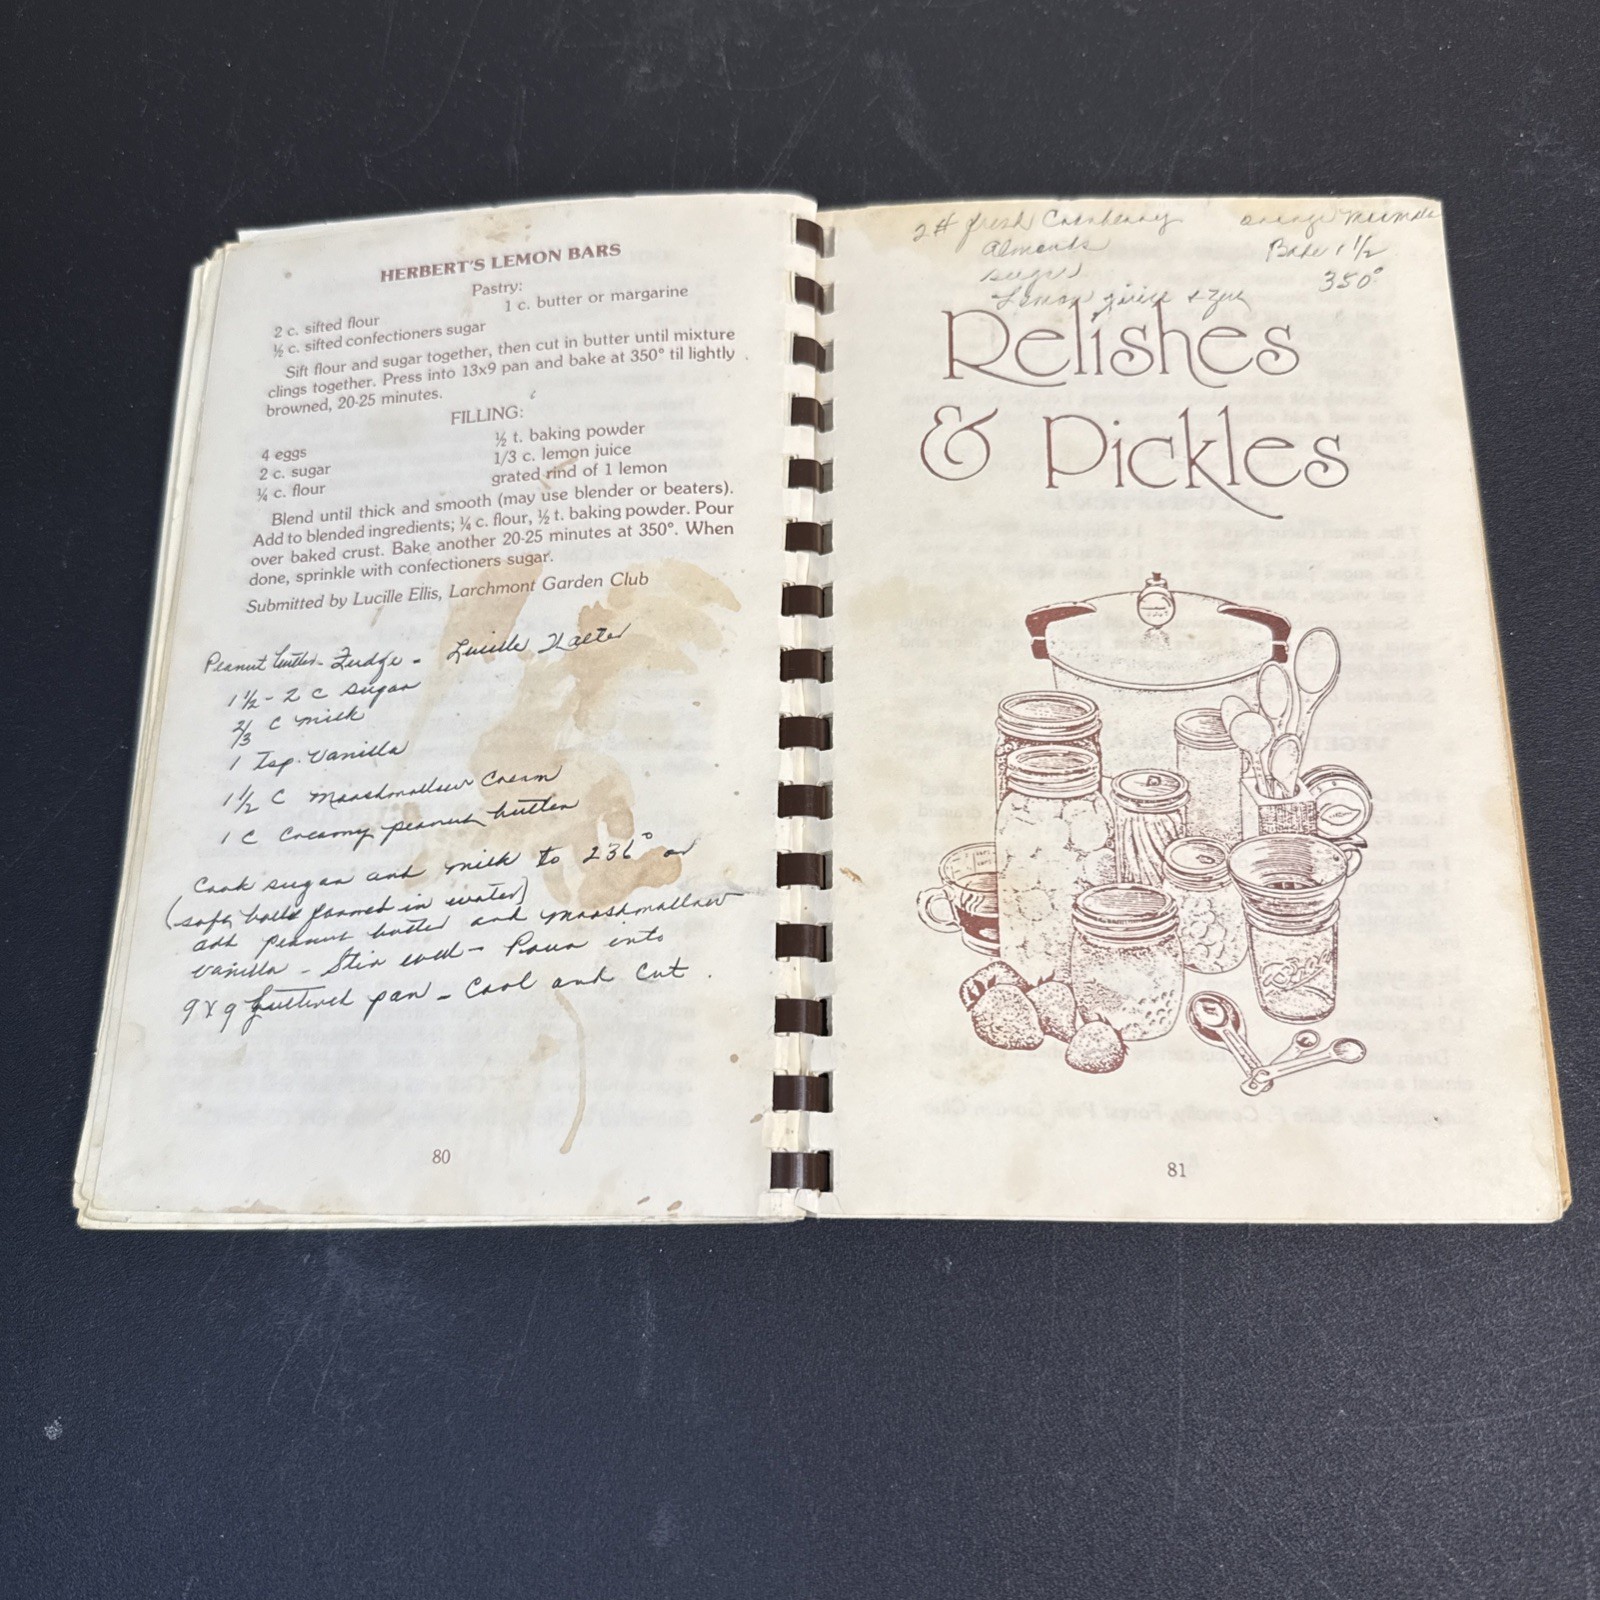 HERBERT'S LEMON BARS
Pastry:
2 c. sifted flour
1 c. butter or margarine
½ c. sifted confectioners sugar
Sift flour and sugar together, then cut in butter until mixture
clings together. Press into 13x9 pan and bake at 350° til lightly
browned, 20-25 minutes.
FILLING:
4 eggs
½ t. baking powder
2 c. sugar
1/3 c. lemon juice
¼ c. flour
grated rind of 1 lemon
Blend until thick and smooth (may use blender or beaters).
Add to blended ingredients; ¼ c. flour, ½ t. baking powder. Pour
over baked crust. Bake another 20-25 minutes at 350°. When
done, sprinkle with confectioners sugar.
Submitted by Lucille Ellis, Larchmont Garden Club
Peanut butter Fudge - Lucille
1½ - 2 c sugar
2/3 c milk
1 Tsp. Vanilla
1½ C Marshmallow Cream
1 C Creamy peanut butter
Cook sugar and milk to 236° or
(soft balls formed in water)
add peanut butter and marshmallow
vanilla - Stir well - Pour into
9x9 buttered pan - Cool and Cut.
80
2# fresh Cranberry
Almonds
sugar
Lemon juice +
orange
Bake 1½
350°
Relishes
& Pickles
81